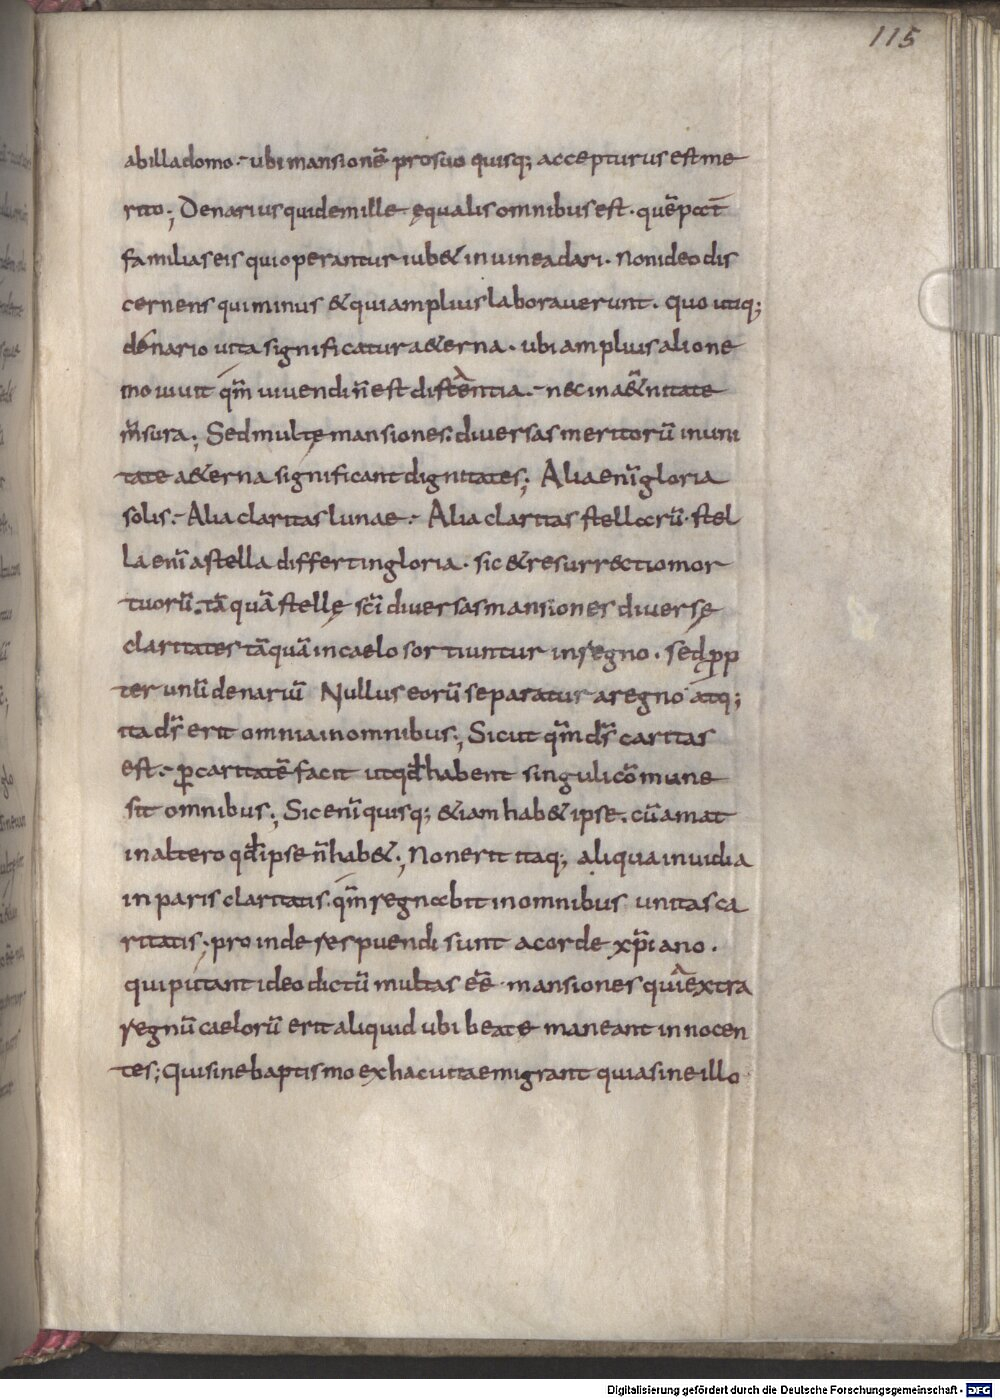 115
ab illa domo·- ubi mansionē pro suo quisq; accepturus est me
rito; Denarius quidem ille ęqualis omnibus est· quē pat̄
familias eis qui operantur iub& in uinea dari· non ideo dis
cernens qui minus & qui amplius laborauerunt· quo utiq;
denario uita significatur a&erna· ubi amplius alio ne
mo uiuit qm̄ uiuendi n̄ est distantia·- nec in a&nitate
m̄sura; Sed multę mansiones· diuersas meritorū in uni
tate a&erna significant dignitates; Alia eni gloria
solis·- Alia claritas lunae·- Alia claritas stellarū· stel
la eni a stella differt in gloria· sic & resurrectio mor
tuorū· tā quā stellę sc̄i diuersas mansiones diuersę
claritates tāquā in caelo sortiuntur in regno· sed prop
ter unū denariū Nullus eorū separatur a regno atq;
ita ds̄ erit omnia in omnibus; Sicut qm̄ ds̄ caritas
est·- ꝑ caritatē facit ut qd̄ habent singuli cōmune
sit omnibus; Sic eni quisq; &iam hab& ipse· cū amat
in altero qd̄ ipse n̄ hab&; Non erit itaq; aliqua inuidia
in paris claritatis· qm̄ regnabit in omnibus unitas ca
ritatis; proinde respuendi sunt a corde xp̄iano·
qui putant ideo dictū multas eē mansiones quia extra
regnū caelorū erit aliquid ubi beate maneant innocen
tes; Qui sine baptismo ex hac uita emigrant quia sine illo
Digitalisierung gefördert durch die Deutsche Forschungsgemeinschaft - DFG